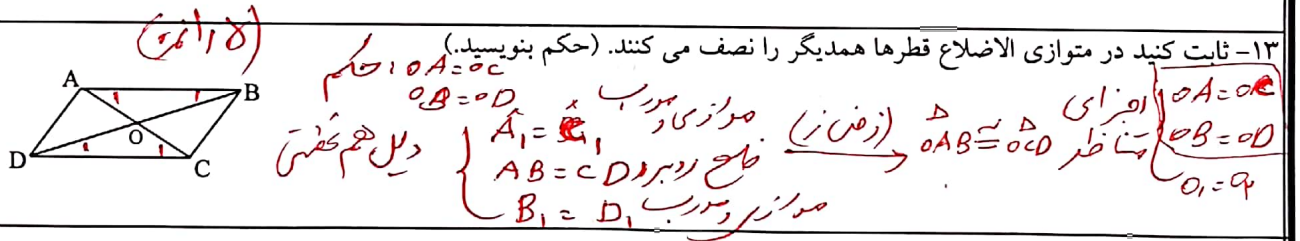 (۱/۵ نمره)
۱۳- ثابت کنید در متوازی الاضلاع قطرها همدیگر را نصف می کنند. (حکم بنویسید.)
حکم: OA=OC
OB=OD
A B
O
D C
دلیل هم نهشتی
Â₁=Ĉ₁ موازی و مورب
AB=CD ضلع روبرو
B₁=D₁ موازی و مورب
(ز ض ز)
OAB≅OCD
اجزای متناظر
OA=OC
OB=OD
O₁=O₂